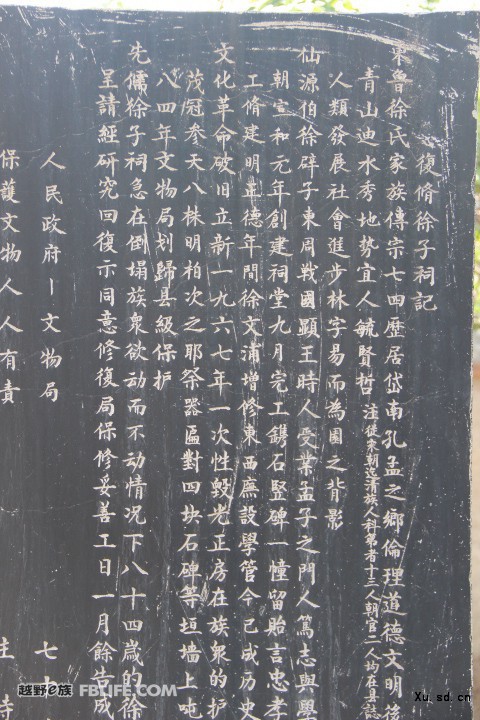 心復脩徐子祠記
東魯徐氏家族傳宗七四歷居岱南孔孟之鄉倫理道德文明後
青山迪水秀地勢宜人毓賢哲注從宋朝迄清族人科第者十三人朝官二人均在县誌
人類發展社會進步林字易而為園之背影
仙源伯徐辟子東周戰國顯王時人受業孟子之門人篤志與學
朝宣和元年創建祠堂九月完工鐫石竪碑一幢留貽言忠孝
工脩建明正德年間徐文浦增修東西廡設學管今已成历史
文化革命破旧立新一九六七年一次性毀光正房在族衆的护
茂冠参天八株明柏次之耶祭器匾對四块石碑等垣墙上吨
八四年文物局划歸县級保护
先獳狳子祠急在倒塌族衆欲动而不动情况下八十四歲的徐
呈請經研究回復示同意修復局保修妥善工日一月餘告成
人民政府一文物局
七十
保護文物人人有責
主持
越野e族 FBLIFE.COM
Xu.sd.cn